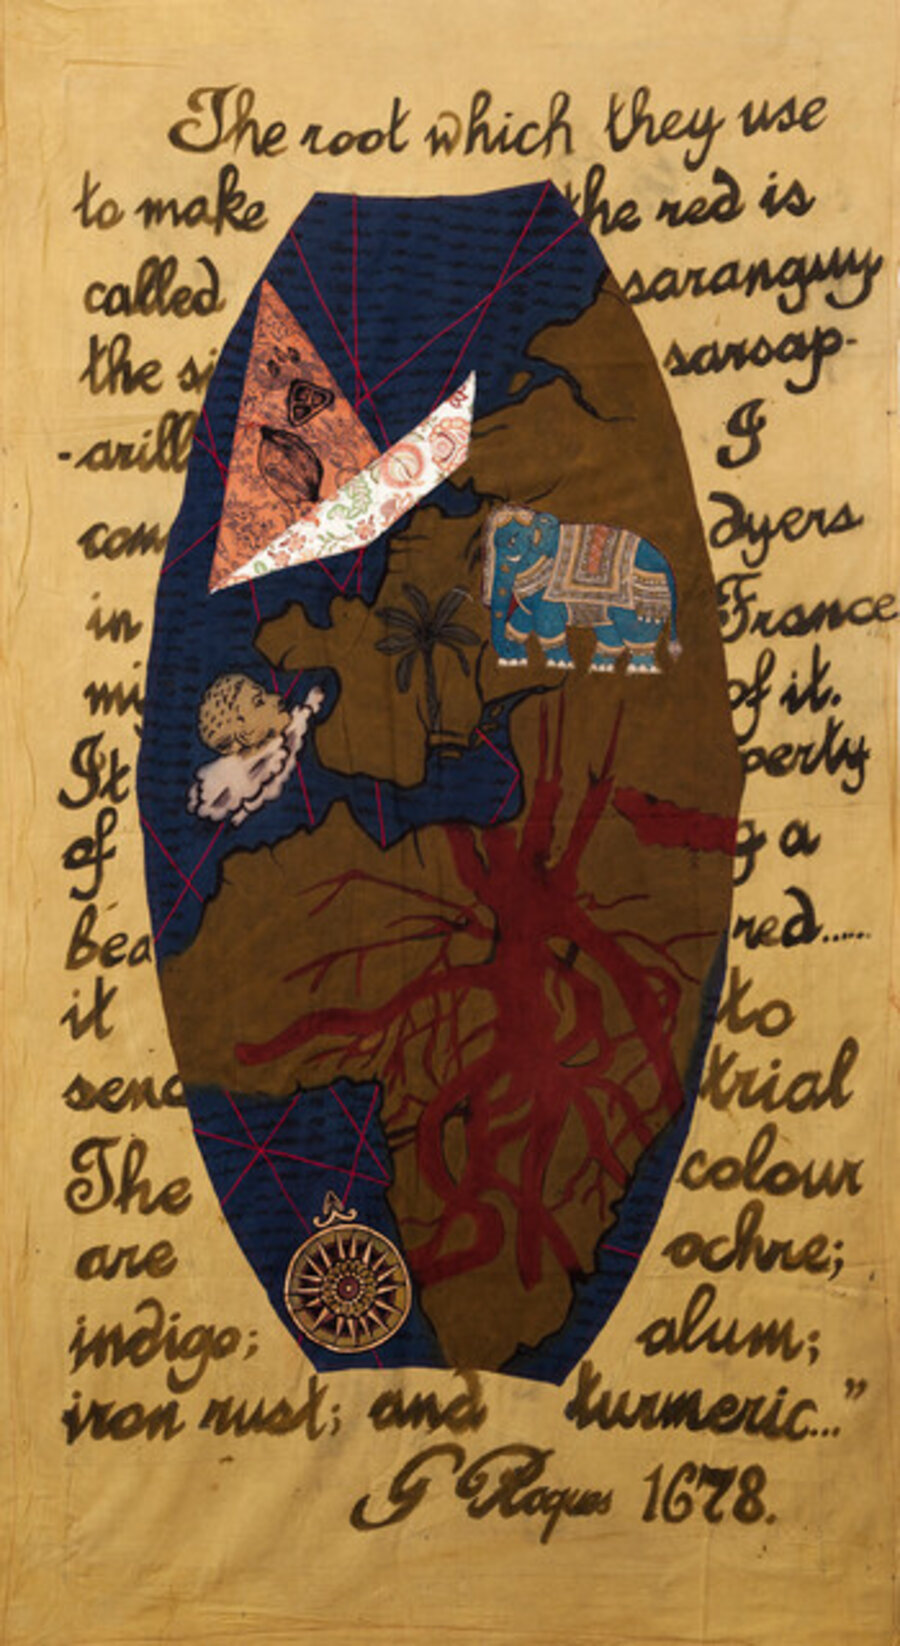 The root which they use
to make the red is
called saranguy
the si sarsap-
-arill I
com dyers
in France
mi of it.
It perty
of g a
bea red.....
it to
send trial
The colour
are ochre;
indigo; alum;
iron rust; and turmeric..."
G Roques 1678.